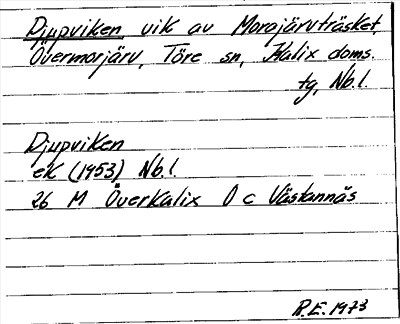 Djupviken vik av Morajärvträsket,
Övermorjärv, Töre sn, Kalix doms.
tg, Nb.l.
Djupviken
ek (1953) Nb.l.
26 M Överkalix 0 c Västannäs
R.E. 1973